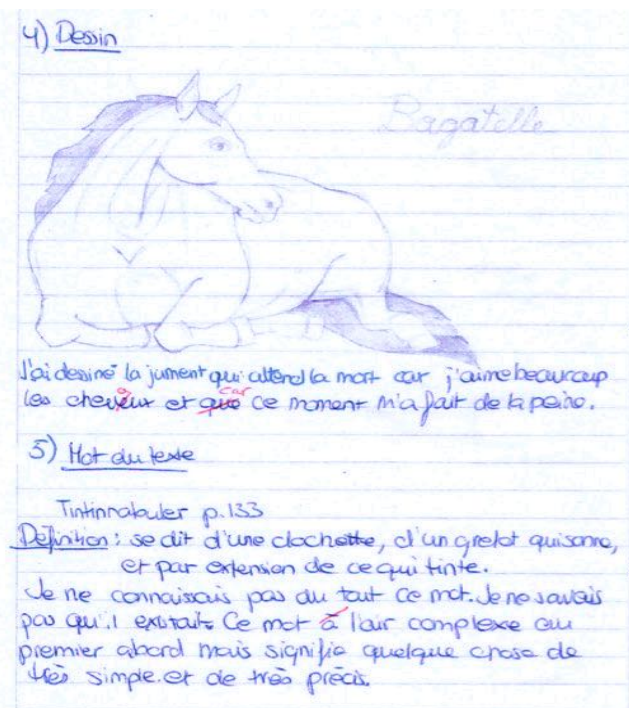 4) Dessin
Bagatelle
J'ai dessiné la jument qui attend la mort car j'aime beaucoup
a car
les cheveux et que ce moment m'a fait de la peine.
5) Mot du texte
Tintinnabuler p.133
Définition : se dit d'une clochette, d'un grelot qui sonne,
et par extension de ce qui tinte.
Je ne connaissais pas du tout ce mot. Je ne savais
pas qu'il existait. Ce mot à l'air complexe au
premier abord mais signifie quelque chose de
très simple et de très précis.